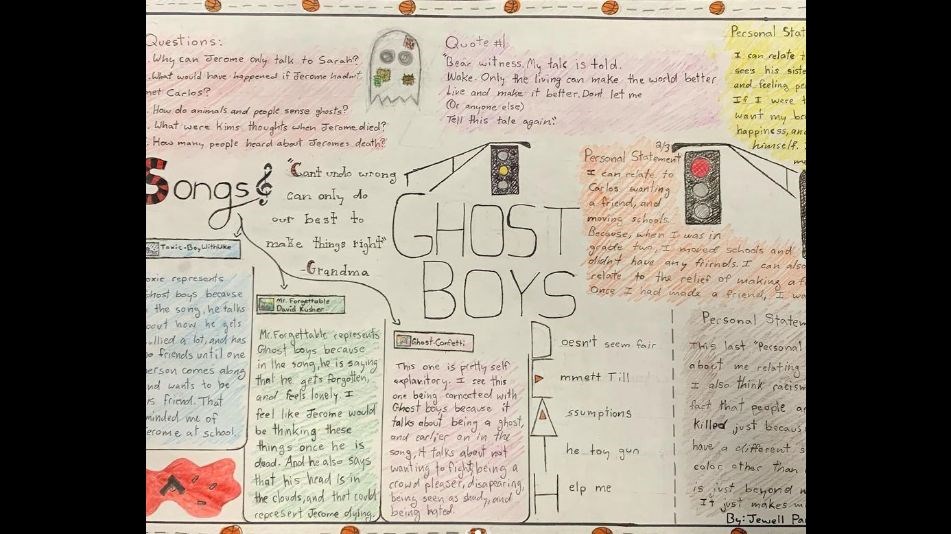 Questions:
Why can Jerome only talk to Sarah?
What would have happened if Jerome hadn't
met Carlos?
How do animals and people sense ghosts?
What were Kims thoughts when Jerome died?
How many people heard about Jeromes death?
Quote #1
"Bear witness. My tale is told.
Wake. Only the living can make the world better
Live and make it better. Dont let me
(Or anyone else)
Tell this tale again."
Personal Stat
I can relate t
sees his siste
and feeling pe
If I were t
want my b
happiness, an
himself.
Songs
"Cant undo wrong
can only do
our best to
make things right"
-Grandma
GHOST
BOYS
2/3
Personal Statement
I can relate to
Carlos wanting
a friend, and
moving schools.
Because, when I was in
grade two, I moved schools and
didn't have any friends. I can also
relate to the relief of making a f
Once I had made a friend, I wa
Toxic-BoyWithUke
oxic represents
Ghost boys because
the song, he talks
about how he gets
llied a lot, and has
o friends until one
erson comes along
nd wants to be
is friend. That
minded me of
erome at school.
Mr. Forgettable
David Kushner
Mr. Forgettable represents
Ghost boys because
in the song, he is saying
that he gets forgotten,
and feels lonely. I
feel like Jerome would
be thinking these
things once he is
dead. And he also says
that his head is in
the clouds, and that could
represent Jerome dying.
Ghost-Confetti
This one is pretty self
explanitory. I see this
one being connected with
Ghost boys because it
talks about being a ghost,
and earlier on in the
song, it talks about not
wanting to fight, being a
crowd pleaser, disapearing,
being seen as shady, and
being hated.
Doesn't seem fair
Emmett Till
Assumptions
The toy gun
Help me
Personal Statem
This last "Personal
about me relating
I also think racism
fact that people a
killed just becaus
have a different s
color other than
is just beyond m
It just makes m
By: Jewell Pa